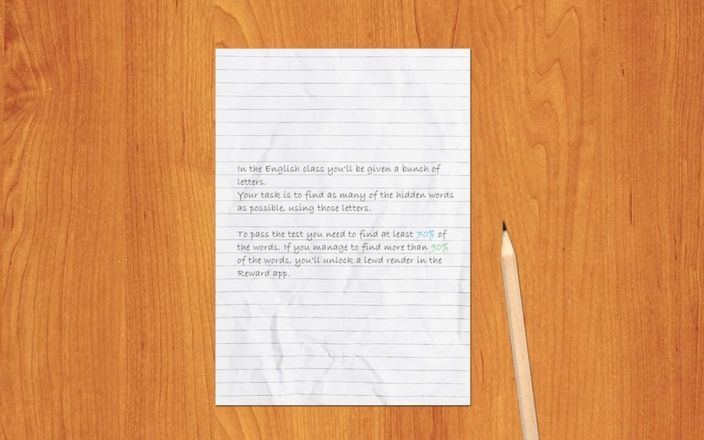 In the English class you'll be given a bunch of
letters.
Your task is to find as many of the hidden words
as possible, using those letters.
To pass the test you need to find at least 70% of
the words. If you manage to find more than 90%
of the words, you'll unlock a lewd render in the
Reward app.